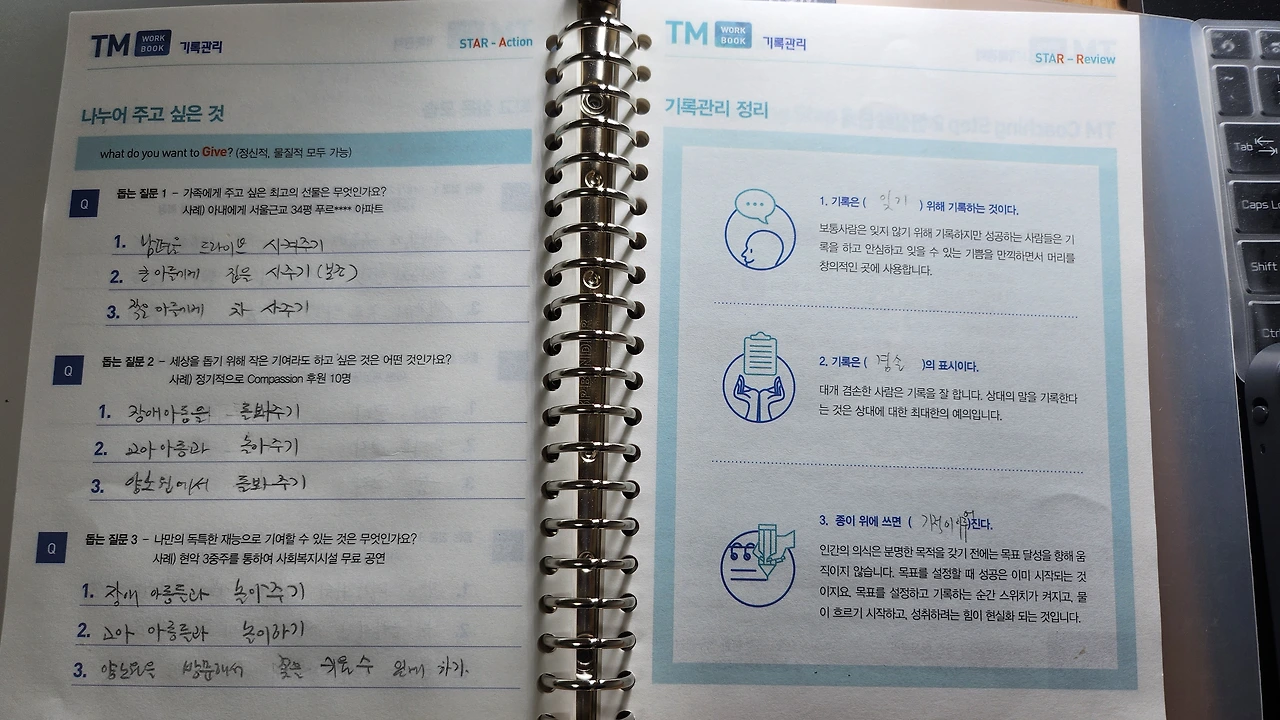 TM WORK BOOK 기록관리
STAR - Action
나누어 주고 싶은 것
what do you want to Give? (정신적, 물질적 모두 가능)
Q 돕는 질문 1 - 가족에게 주고 싶은 최고의 선물은 무엇인가요?
사례) 아내에게 서울근교 34평 푸르**** 아파트
1. 남편을 드라이브 시켜주기
2. 큰 아들에게 집을 사주기 (보조)
3. 작은 아들에게 차 사주기
Q 돕는 질문 2 - 세상을 돕기 위해 작은 기여라도 하고 싶은 것은 어떤 것인가요?
사례) 정기적으로 Compassion 후원 10명
1. 장애아동을 돌봐주기
2. 고아 아동과 놀아주기
3. 양노원에서 돌봐주기
Q 돕는 질문 3 - 나만의 독특한 재능으로 기여할 수 있는 것은 무엇인가요?
사례) 현악 3중주를 통하여 사회복지시설 무료 공연
1. 장애 아동들과 놀아주기
2. 고아 아동들과 놀이하기
3. 양노원을 방문해서 수 하기.
TM WORK BOOK 기록관리
STAR - Review
기록관리 정리
1. 기록은 ( 잊기 ) 위해 기록하는 것이다.
보통사람은 잊지 않기 위해 기록하지만 성공하는 사람들은 기
록을 하고 안심하고 잊을 수 있는 기쁨을 만끽하면서 머리를
창의적인 곳에 사용합니다.
2. 기록은 ( 겸손 )의 표시이다.
대개 겸손한 사람은 기록을 잘 합니다. 상대의 말을 기록한다
는 것은 상대에 대한 최대한의 예의입니다.
3. 종이 위에 쓰면 ( 기적이 이루어 )진다.
인간의 의식은 분명한 목적을 갖기 전에는 목표 달성을 향해 움
직이지 않습니다. 목표를 설정할 때 성공은 이미 시작되는 것
이지요. 목표를 설정하고 기록하는 순간 스위치가 켜지고, 물
이 흐르기 시작하고, 성취하려는 힘이 현실화 되는 것입니다.
Tab
Caps Lo
Shift
Ctrl